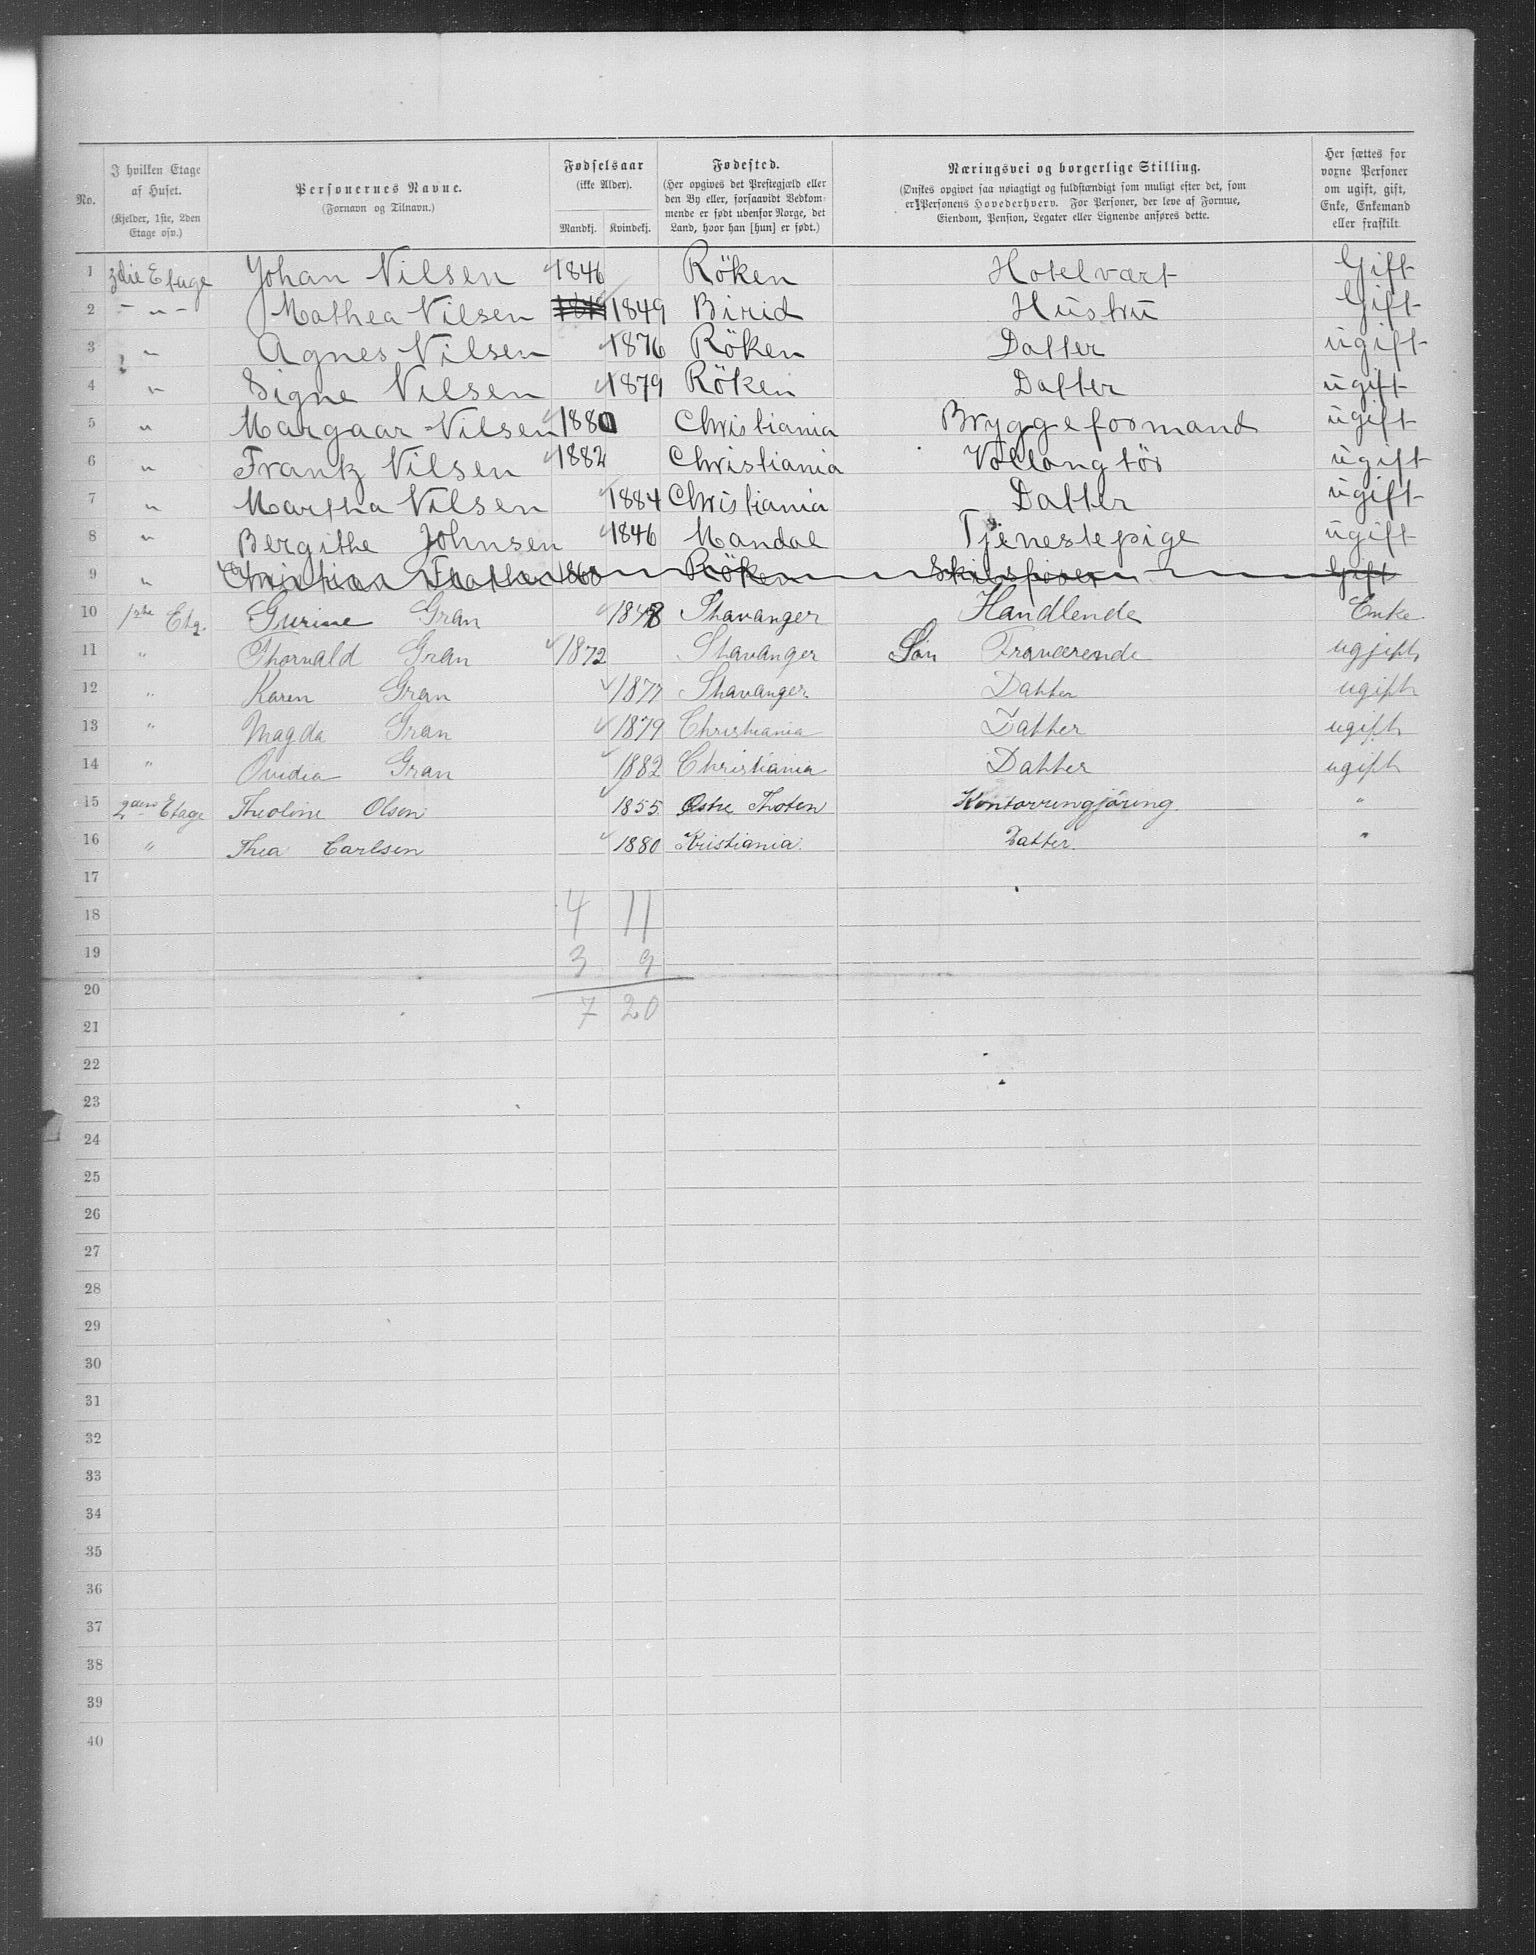 No.
I hvilken Etage af Huset. (Kjelder, 1ste, 2den Etage osv.)
Personernes Navne. (Fornavn og Tilnavn.)
Fødselsaar (ikke Alder). Mandkj. Kvindekj.
Fødested. (Her opgives det Prestegjæld eller den By eller, forsaavidt Vedkommende er født udenfor Norge, det Land, hvor han [hun] er født.)
Næringsvei og borgerlige Stilling. (Ønskes opgivet saa nøiagtigt og fuldstændigt som muligt efter det, som er Personens Hovederhverv. For Personer, der leve af Formue, Eiendom, Pension, Legater eller Lignende anføres dette.
Her sættes for voxne Personer om ugift, gift, Enke, Enkemand eller fraskilt.
1 3die Etage Johan Nilsen 1846 Röken Hotelvært Gift
2 - " - Mathea Nilsen 1849 1849 Birid Hustru Gift
3 " Agnes Nilsen 1876 Röken Datter ugift
4 " Signe Nilsen 1879 Röken Datter ugift
5 " Margaar Nilsen 1880 Christiania Bryggeformand ugift
6 " Frantz Nilsen 1882 Christiania Vollangtör ugift
7 " Martha Nilsen 1884 Christiania Datter ugift
8 " Bergithe Johnsen 1846 Mandal Tjenestepige ugift
9 " Christian 1860 Röken Gift
10 1ste Etg. Gurine Gran 1848 Stavanger Handlende Enke.
11 " Thorvald Gran 1872 Stavanger Sön Fraværende ugift
12 " Karen Gran 1877 Stavanger Datter ugift
13 " Magda Gran 1879 Christiania Datter ugift
14 " Ovidia Gran 1882 Christiania Datter ugift
15 2den Etage Theoline Olsen 1855. Östre Thoten Kontorrengjöring "
16 " Thea Carlsen 1880 Kristiania. Datter. "
17
18 4 11
19 3 9
20 7 20
21
22
23
24
25
26
27
28
29
30
31
32
33
34
35
36
37
38
39
40